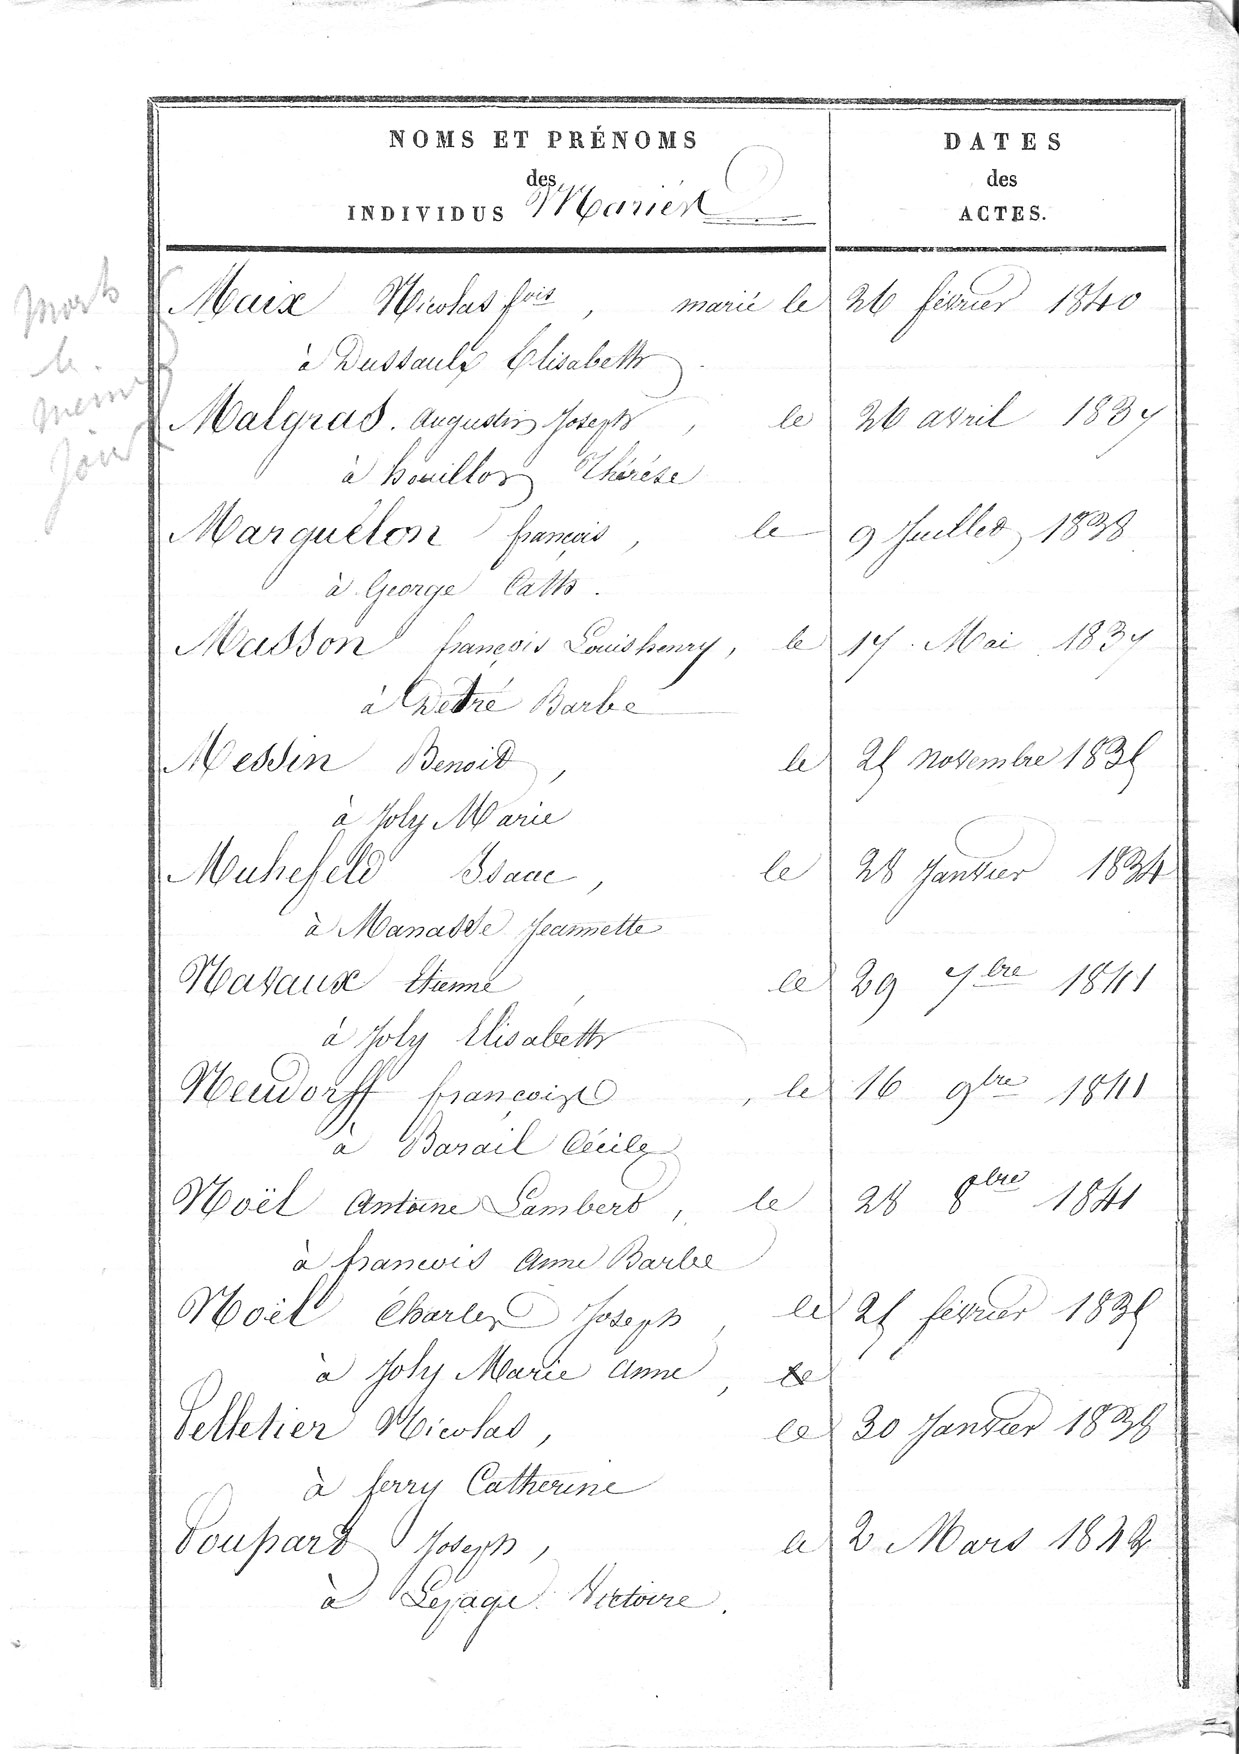 NOMS ET PRÉNOMS
des
INDIVIDUS Mariés
DATES
des
ACTES.
morts
le
même
jour
Maix Nicolas fois, marié le 26 février 1840
à Dussaulx Elisabeth
Malgras. Augustin Joseph, le 26 avril 1837
à houillon Thérèse
Marquélon françois, le 9 Juillet 1838
à George Cath.
Masson françois Louis henry, le 17. Mai 1837
à Detré Barbe
Messin Benoit, le 25 novembre 1835
à Joly Marie
Muhefeld Isaac, le 28 Janvier 1834
à Manasse Jeannette
Navaux Etienne, le 29 7bre 1841
à Joly Elisabeth
Neudorff françois, le 16 9bre 1841
à Barail Cécile
Noël Antoine Lambert, le 28 8bre 1841
à francois Anne Barbe
Noël Charles Joseph, le 25 février 1835
à Joly Marie Anne, le
Pelletier Nicolas, le 30 Janvier 1838
à ferry Catherine
Poupart Joseph, le 2 Mars 1842
à Lepage Victoire.